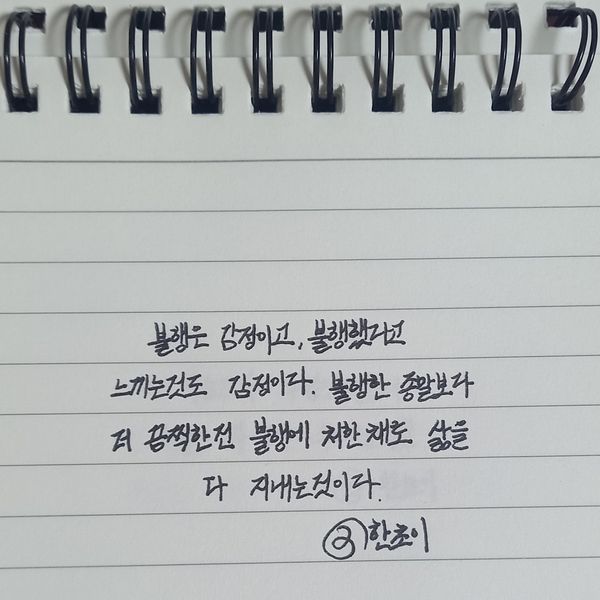 불행은 감정이고, 불행했다고
느끼는것도 감정이다. 불행한 종말보다
더 끔찍한건 불행에 처한채로 삶을
다 지내는것이다.
한초이